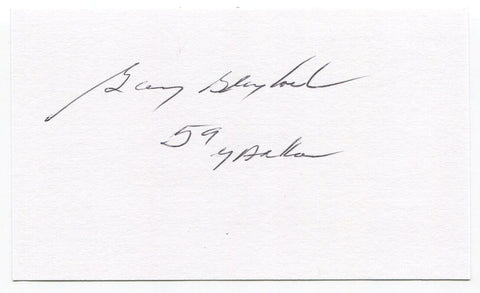 Gary Blaylock
59 Yankees